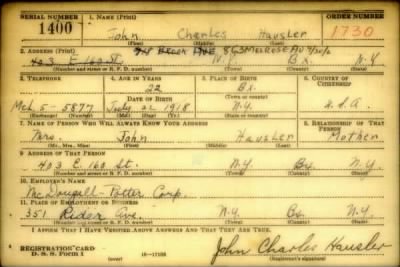 SERIAL NUMBER 1. NAME (Print) ORDER NUMBER
1400 John Charles Hausler 1730
(First) (Middle) (Last)
2. ADDRESS (Print) 863 MELROSE AV
403 E 160 St. N.Y. Bx. N.Y.
(Number and street or R. F. D. number) (Town) (County) (State)
3. TELEPHONE 4. AGE IN YEARS 5. PLACE OF BIRTH 6. COUNTRY OF CITIZENSHIP
22 Bx.
DATE OF BIRTH (Town or county)
Mel. 5-5877 July 21 1918 N.Y. U.S.A.
(Exchange) (Number) (Mo.) (Day) (Yr.) (State or country)
7. NAME OF PERSON WHO WILL ALWAYS KNOW YOUR ADDRESS 8. RELATIONSHIP OF THAT PERSON
Mrs. John Hausler Mother
(Mr., Mrs., Miss) (First) (Middle) (Last)
9. ADDRESS OF THAT PERSON
403 E. 160 St. N.Y. Bx. N.Y.
(Number and street or R. F. D. number) (Town) (County) (State)
10. EMPLOYER'S NAME
McDougall-Potter Corp.
11. PLACE OF EMPLOYMENT OR BUSINESS
351 Rider Ave. N.Y. Bx. N.Y.
(Number and street or R. F. D. number) (Town) (County) (State)
I AFFIRM THAT I HAVE VERIFIED ABOVE ANSWERS AND THAT THEY ARE TRUE.
REGISTRATION CARD
D. S. S. Form 1 (over) 16—17105 John Charles Hausler
(Registrant's signature)